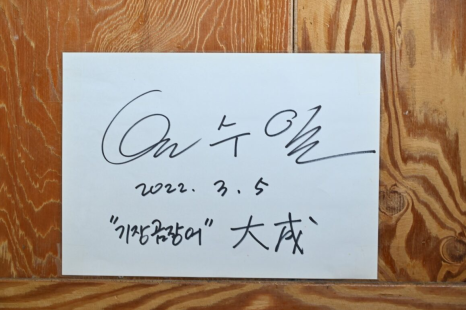 수일
2022. 3. 5
"기장곰장어" 大成